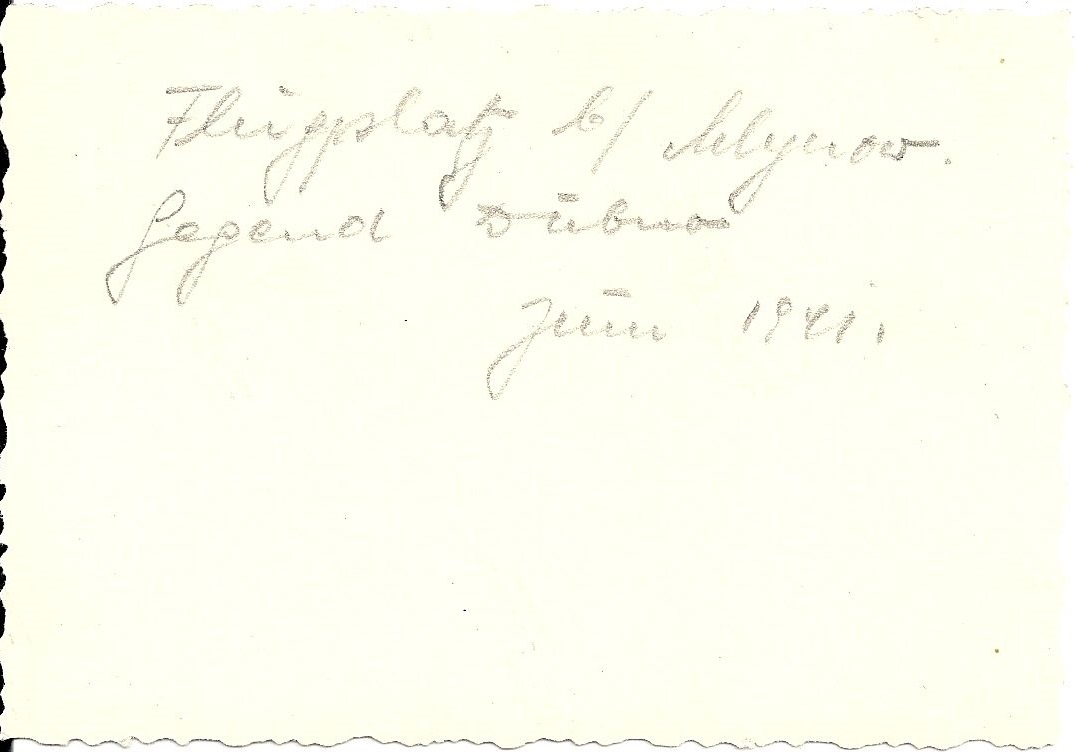 Flugplatz b/ Mlynow.
Gegend Dubno
Juni 1941.